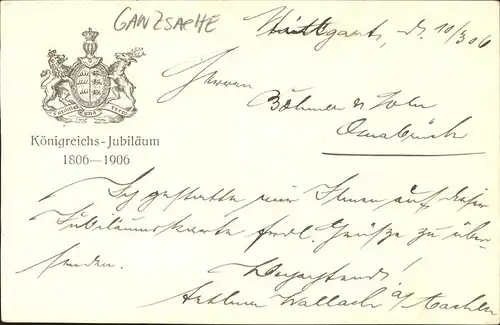 GANZSACHE
Stuttgart, d. 10/3 06
Herren
Böhmer & Sohn
Osnabrück
Königreichs-Jubiläum
1806—1906
Ich gestatte mir Ihnen auf dieser
Jubiläumskarte frdl. Grüße zu über-
senden.
Hochachtend!
Arthur Wallach a/ Aachen